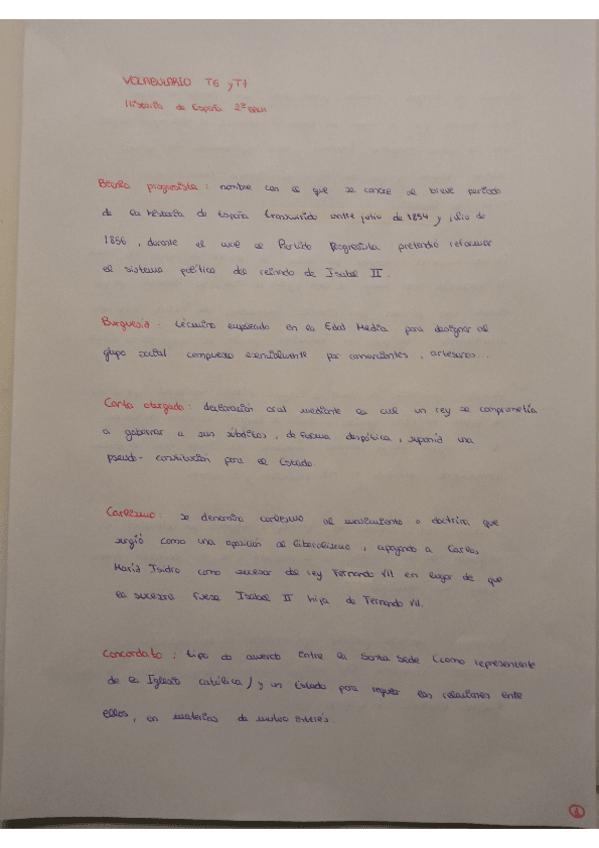 VOCABULARIO T6 y T7
Historia de España 2º BACH
Bienio progresista: nombre con el que se conoce al breve período
de la historia de España transcurrido entre julio de 1854 y julio de
1856, durante el cual el Partido Progresista pretendió reformar
el sistema político del reinado de Isabel II.
Burguesía: término empleado en la Edad Media para designar al
grupo social compuesto esencialmente por comerciantes, artesanos...
Carta otorgada: declaración oral mediante la cual un rey se comprometía
a gobernar a sus súbditos, de forma despótica, suponía una
pseudo-constitución para el Estado.
Carlismo: se denomina carlismo al movimiento o doctrina que
surgió como una oposición al liberalismo, apoyando a Carlos
María Isidro como sucesor del rey Fernando VII en lugar de que
la sucesora fuese Isabel II hija de Fernando VII.
Concordato: tipo de acuerdo entre la Santa Sede (como representante
de la Iglesia católica) y un Estado para regular las relaciones entre
ellos, en materias de mutuo interés.
1